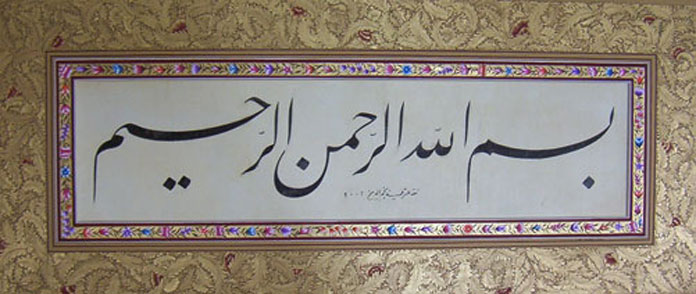 بسم الله الرَّحمن الرَّحيم
٢٠٠٢